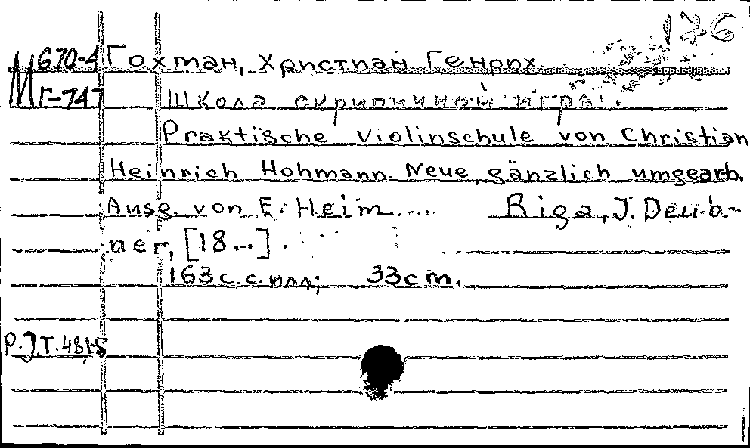 136
М 670-4 Гохман, Христиан Генрих
Г-747 Школа скрипичной игры.
Praktische Violinschule von Christian
Heinrich Hohmann. Neue, gänzlich umgearb.
Ausg. von E. Heim.... Riga, J. Deub-
ner, [18...].
163 с. с илл; 33 cm.